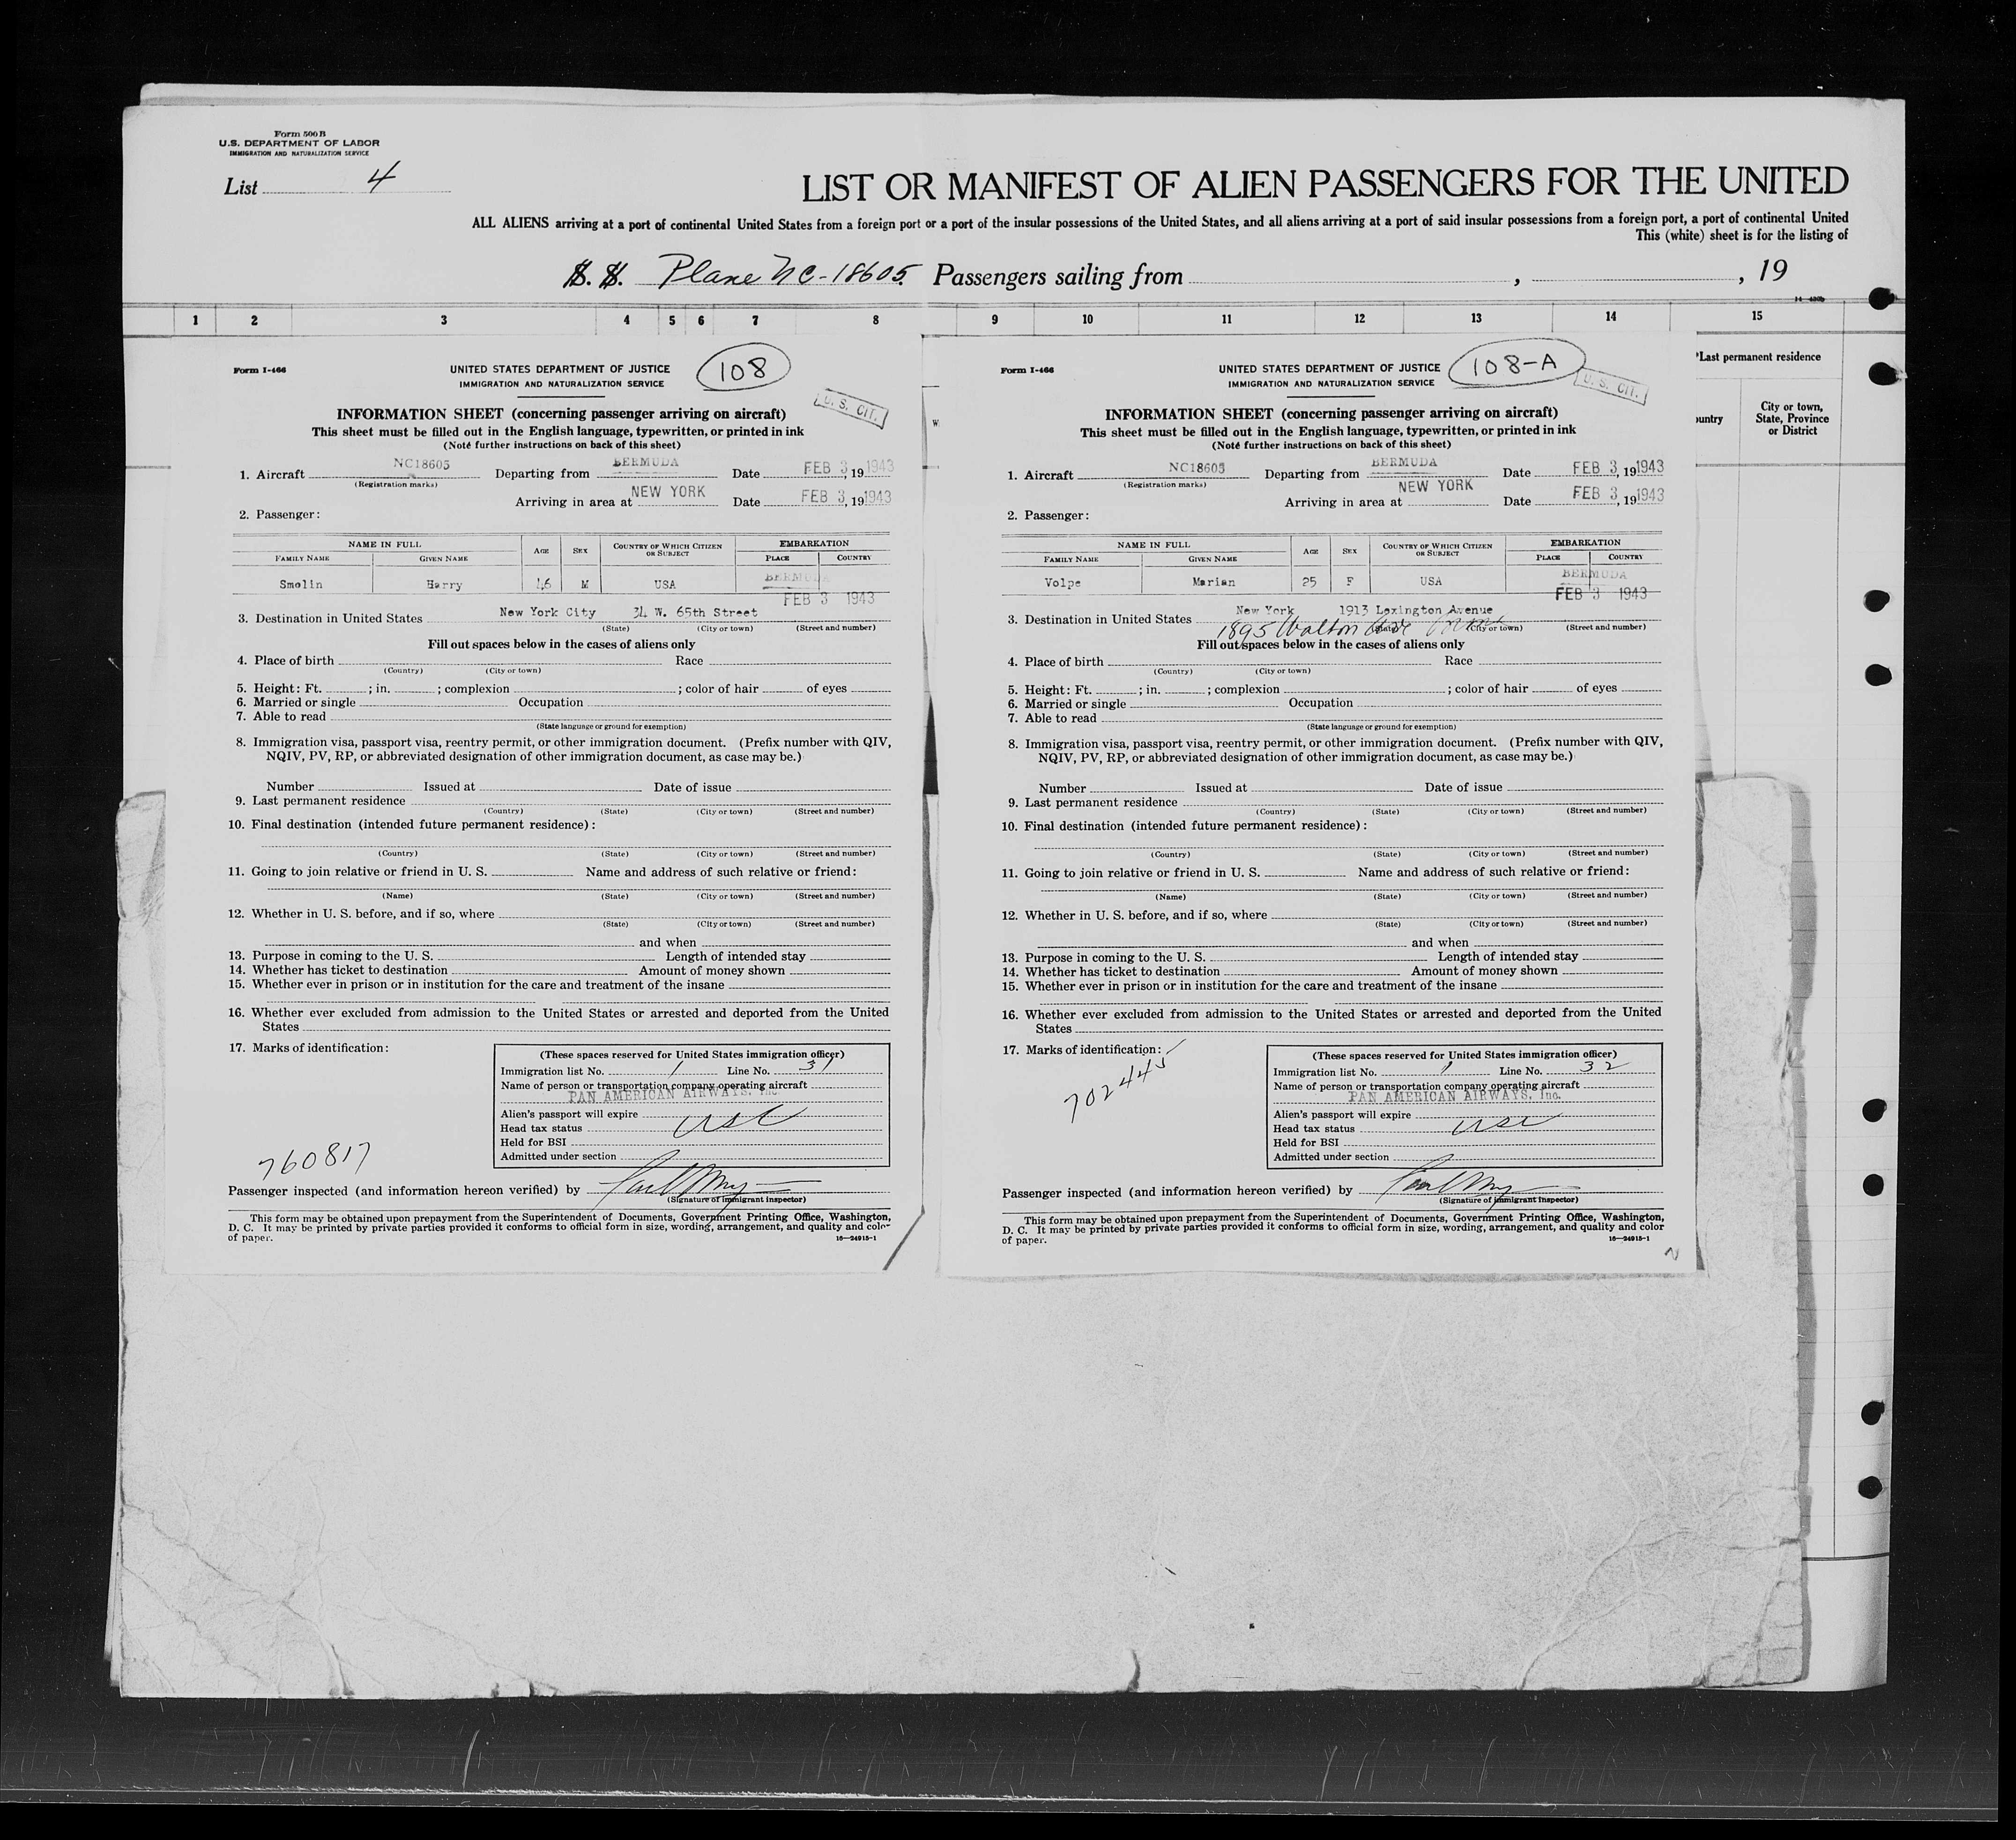 Form 500 B
U.S. DEPARTMENT OF LABOR
IMMIGRATION AND NATURALIZATION SERVICE
List 4
LIST OR MANIFEST OF ALIEN PASSENGERS FOR THE UNITED
ALL ALIENS arriving at a port of continental United States from a foreign port or a port of the insular possessions of the United States, and all aliens arriving at a port of said insular possessions from a foreign port, a port of continental United
This (white) sheet is for the listing of
S. S. Plane NC-18605 Passengers sailing from , , 19
1 2 3 4 5 6 7 8 9 10 11 12 13 14 15
Form I-466
UNITED STATES DEPARTMENT OF JUSTICE
IMMIGRATION AND NATURALIZATION SERVICE
108
U. S. CIT.
INFORMATION SHEET (concerning passenger arriving on aircraft)
This sheet must be filled out in the English language, typewritten, or printed in ink
(Note further instructions on back of this sheet)
1. Aircraft NC18605 Departing from BERMUDA Date FEB 3, 19 1943
(Registration marks)
Arriving in area at NEW YORK Date FEB 3, 19 1943
2. Passenger:
NAME IN FULL AGE SEX COUNTRY OF WHICH CITIZEN OR SUBJECT EMBARKATION
FAMILY NAME GIVEN NAME PLACE COUNTRY
Smolin Harry 46 M USA BERMUDA
FEB 3 1943
3. Destination in United States New York City 34 W. 65th Street
(State) (City or town) (Street and number)
Fill out spaces below in the cases of aliens only
4. Place of birth Race
(Country) (City or town)
5. Height: Ft. ; in. ; complexion ; color of hair of eyes
6. Married or single Occupation
7. Able to read
(State language or ground for exemption)
8. Immigration visa, passport visa, reentry permit, or other immigration document. (Prefix number with QIV,
NQIV, PV, RP, or abbreviated designation of other immigration document, as case may be.)
Number Issued at Date of issue
9. Last permanent residence
(Country) (State) (City or town) (Street and number)
10. Final destination (intended future permanent residence):
(Country) (State) (City or town) (Street and number)
11. Going to join relative or friend in U. S. Name and address of such relative or friend:
(Name) (State) (City or town) (Street and number)
12. Whether in U. S. before, and if so, where
(State) (City or town) (Street and number)
and when
13. Purpose in coming to the U. S. Length of intended stay
14. Whether has ticket to destination Amount of money shown
15. Whether ever in prison or in institution for the care and treatment of the insane
16. Whether ever excluded from admission to the United States or arrested and deported from the United
States
17. Marks of identification:
(These spaces reserved for United States immigration officer)
Immigration list No. 1 Line No. 31
Name of person or transportation company operating aircraft
PAN AMERICAN AIRWAYS, Inc.
Alien's passport will expire
Head tax status USC
Held for BSI
Admitted under section
760817
Passenger inspected (and information hereon verified) by
(Signature of immigrant inspector)
This form may be obtained upon prepayment from the Superintendent of Documents, Government Printing Office, Washington,
D. C. It may be printed by private parties provided it conforms to official form in size, wording, arrangement, and quality and color
of paper.
16—24915-1
Form I-466
UNITED STATES DEPARTMENT OF JUSTICE
IMMIGRATION AND NATURALIZATION SERVICE
108-A
U. S. CIT.
INFORMATION SHEET (concerning passenger arriving on aircraft)
This sheet must be filled out in the English language, typewritten, or printed in ink
(Note further instructions on back of this sheet)
1. Aircraft NC18605 Departing from BERMUDA Date FEB 3, 19 1943
(Registration marks)
Arriving in area at NEW YORK Date FEB 3, 19 1943
2. Passenger:
NAME IN FULL AGE SEX COUNTRY OF WHICH CITIZEN OR SUBJECT EMBARKATION
FAMILY NAME GIVEN NAME PLACE COUNTRY
Volpe Marian 25 F USA BERMUDA
FEB 3 1943
New York 1913 Lexington Avenue
3. Destination in United States 1895 Walton Ave
(State) (City or town) (Street and number)
Fill out spaces below in the cases of aliens only
4. Place of birth Race
(Country) (City or town)
5. Height: Ft. ; in. ; complexion ; color of hair of eyes
6. Married or single Occupation
7. Able to read
(State language or ground for exemption)
8. Immigration visa, passport visa, reentry permit, or other immigration document. (Prefix number with QIV,
NQIV, PV, RP, or abbreviated designation of other immigration document, as case may be.)
Number Issued at Date of issue
9. Last permanent residence
(Country) (State) (City or town) (Street and number)
10. Final destination (intended future permanent residence):
(Country) (State) (City or town) (Street and number)
11. Going to join relative or friend in U. S. Name and address of such relative or friend:
(Name) (State) (City or town) (Street and number)
12. Whether in U. S. before, and if so, where
(State) (City or town) (Street and number)
and when
13. Purpose in coming to the U. S. Length of intended stay
14. Whether has ticket to destination Amount of money shown
15. Whether ever in prison or in institution for the care and treatment of the insane
16. Whether ever excluded from admission to the United States or arrested and deported from the United
States
17. Marks of identification:
702445
(These spaces reserved for United States immigration officer)
Immigration list No. 1 Line No. 32
Name of person or transportation company operating aircraft
PAN AMERICAN AIRWAYS, Inc.
Alien's passport will expire
Head tax status USC
Held for BSI
Admitted under section
Passenger inspected (and information hereon verified) by
(Signature of immigrant inspector)
This form may be obtained upon prepayment from the Superintendent of Documents, Government Printing Office, Washington,
D. C. It may be printed by private parties provided it conforms to official form in size, wording, arrangement, and quality and color
of paper.
16—24915-1
Last permanent residence
City or town,
State, Province
or District